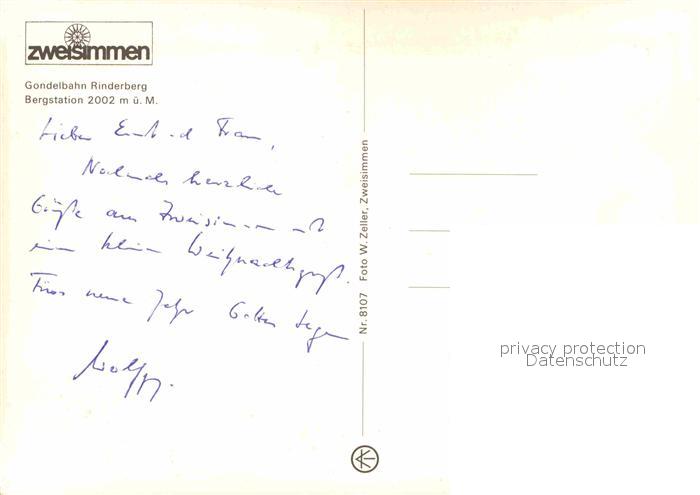 zweisimmen
Gondelbahn Rinderberg
Bergstation 2002 m ü. M.
Lieber Ernst und Frau,
Nochmals herzliche
Grüße aus Zweisimmen mit
ein klein Weihnachtsgruß.
Fürs neue Jahr Gottes Segen
Nr. 8107 Foto W. Zeller, Zweisimmen
privacy protection
Datenschutz